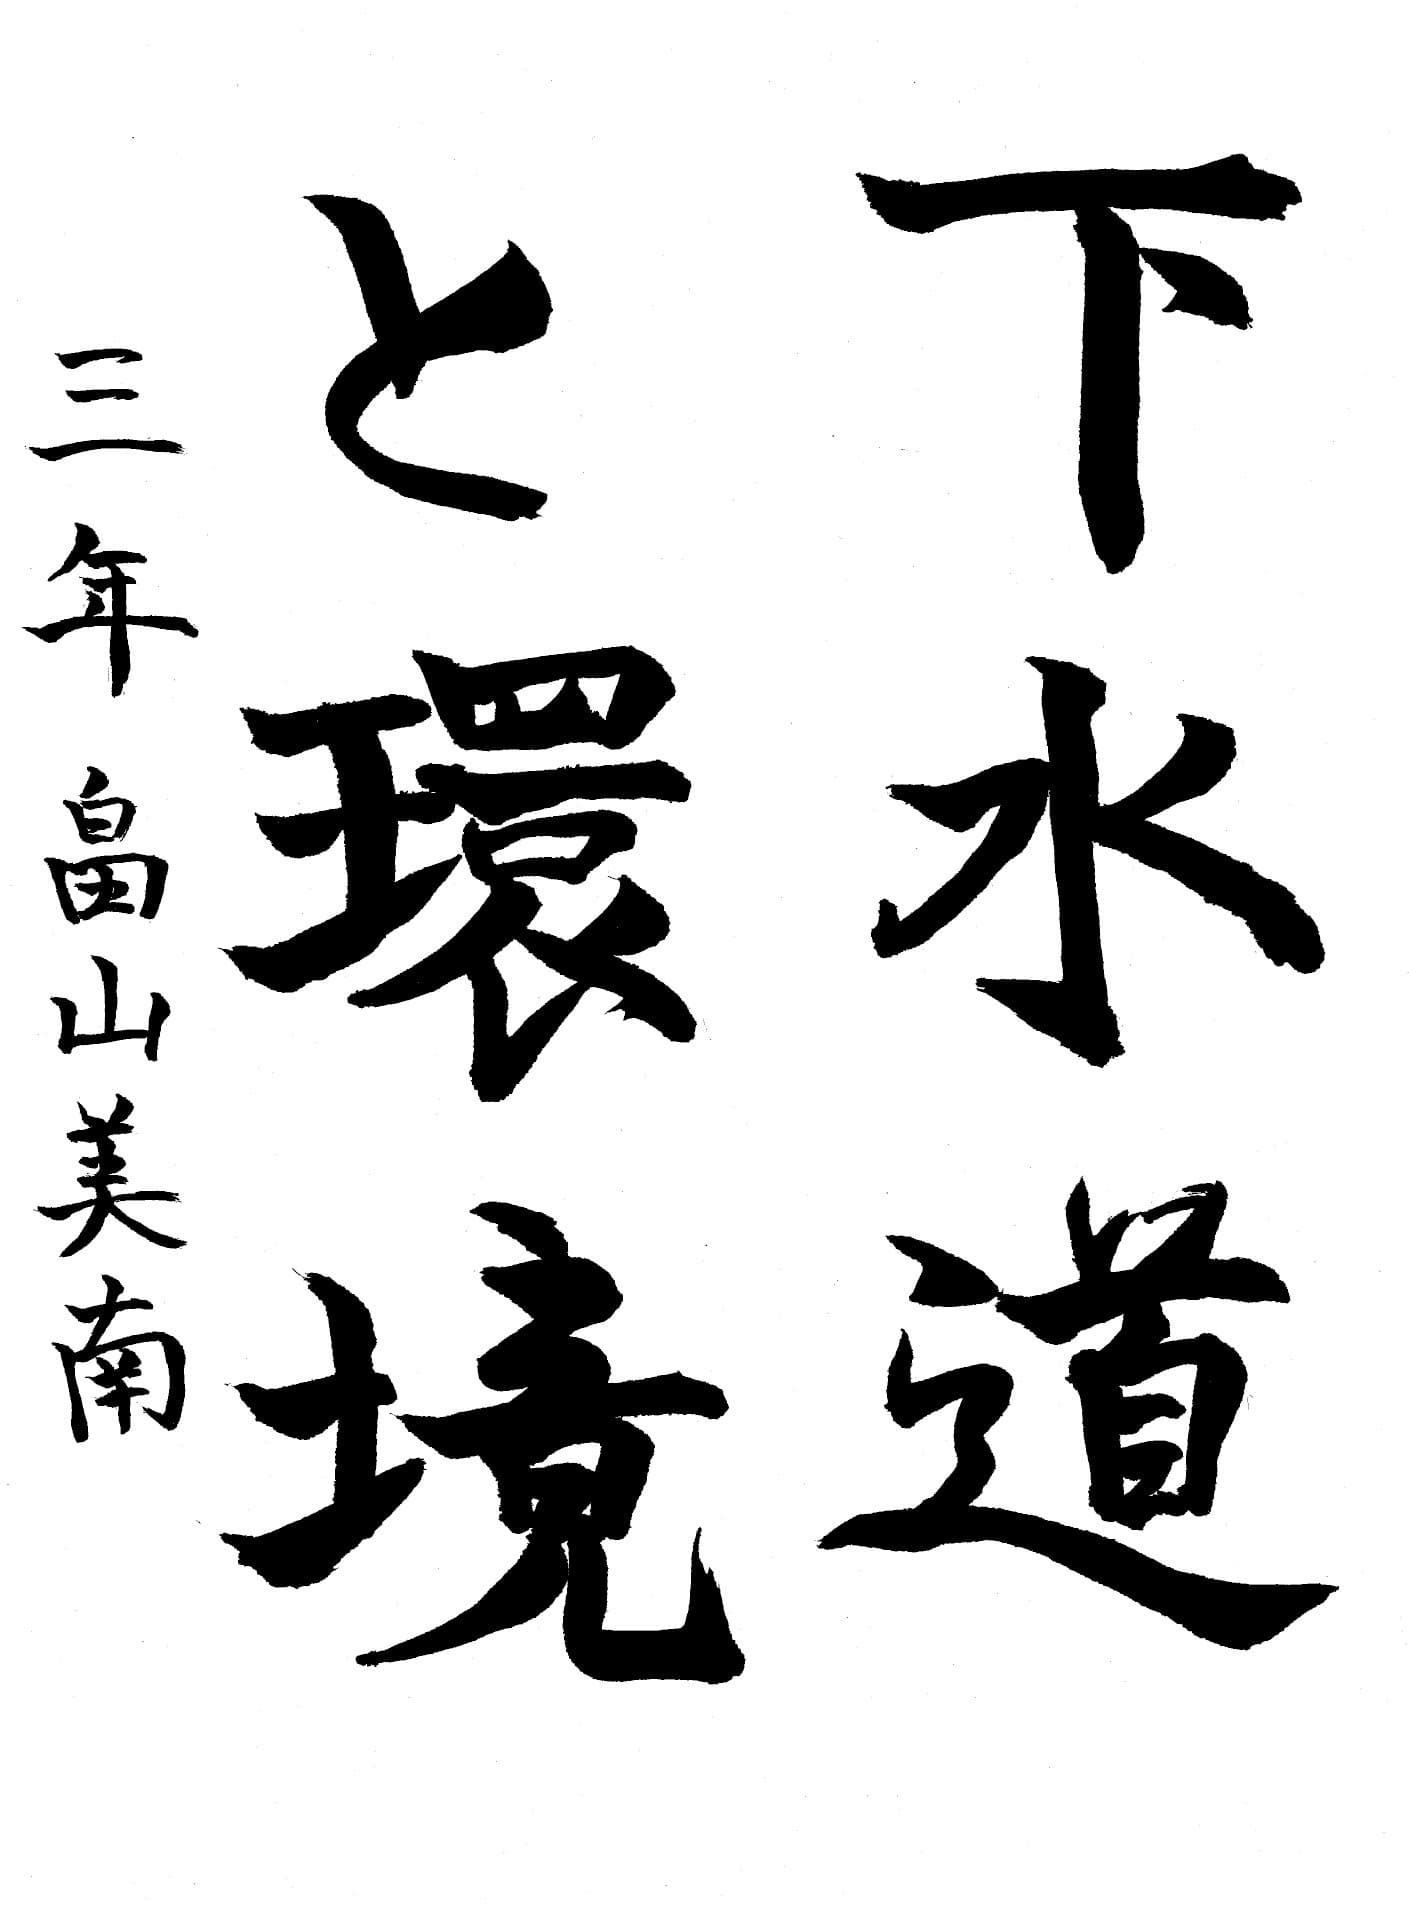 下水道
と環境
三年 畠山美南